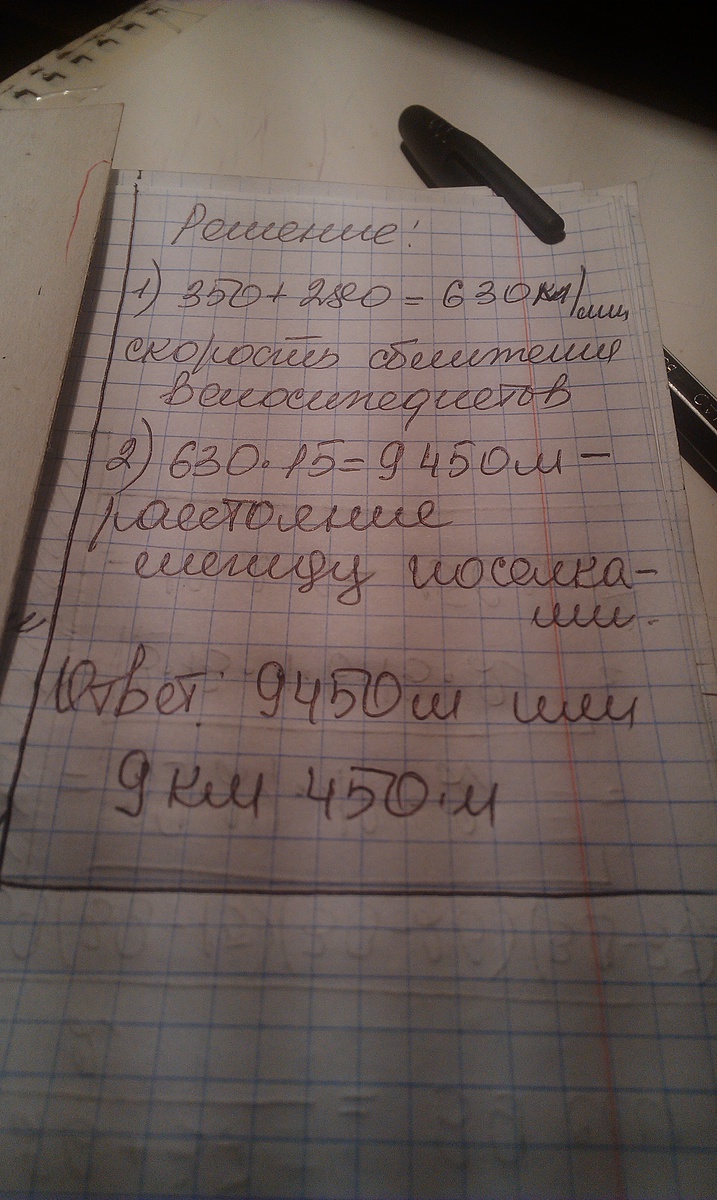 Решение:
1) 350 + 280 = 630 км/мин
скорость сближения
велосипедистов
2) 630 · 15 = 9 450 м —
расстояние
между поселка-
ми.
Ответ: 9450 м или
9 км 450 м